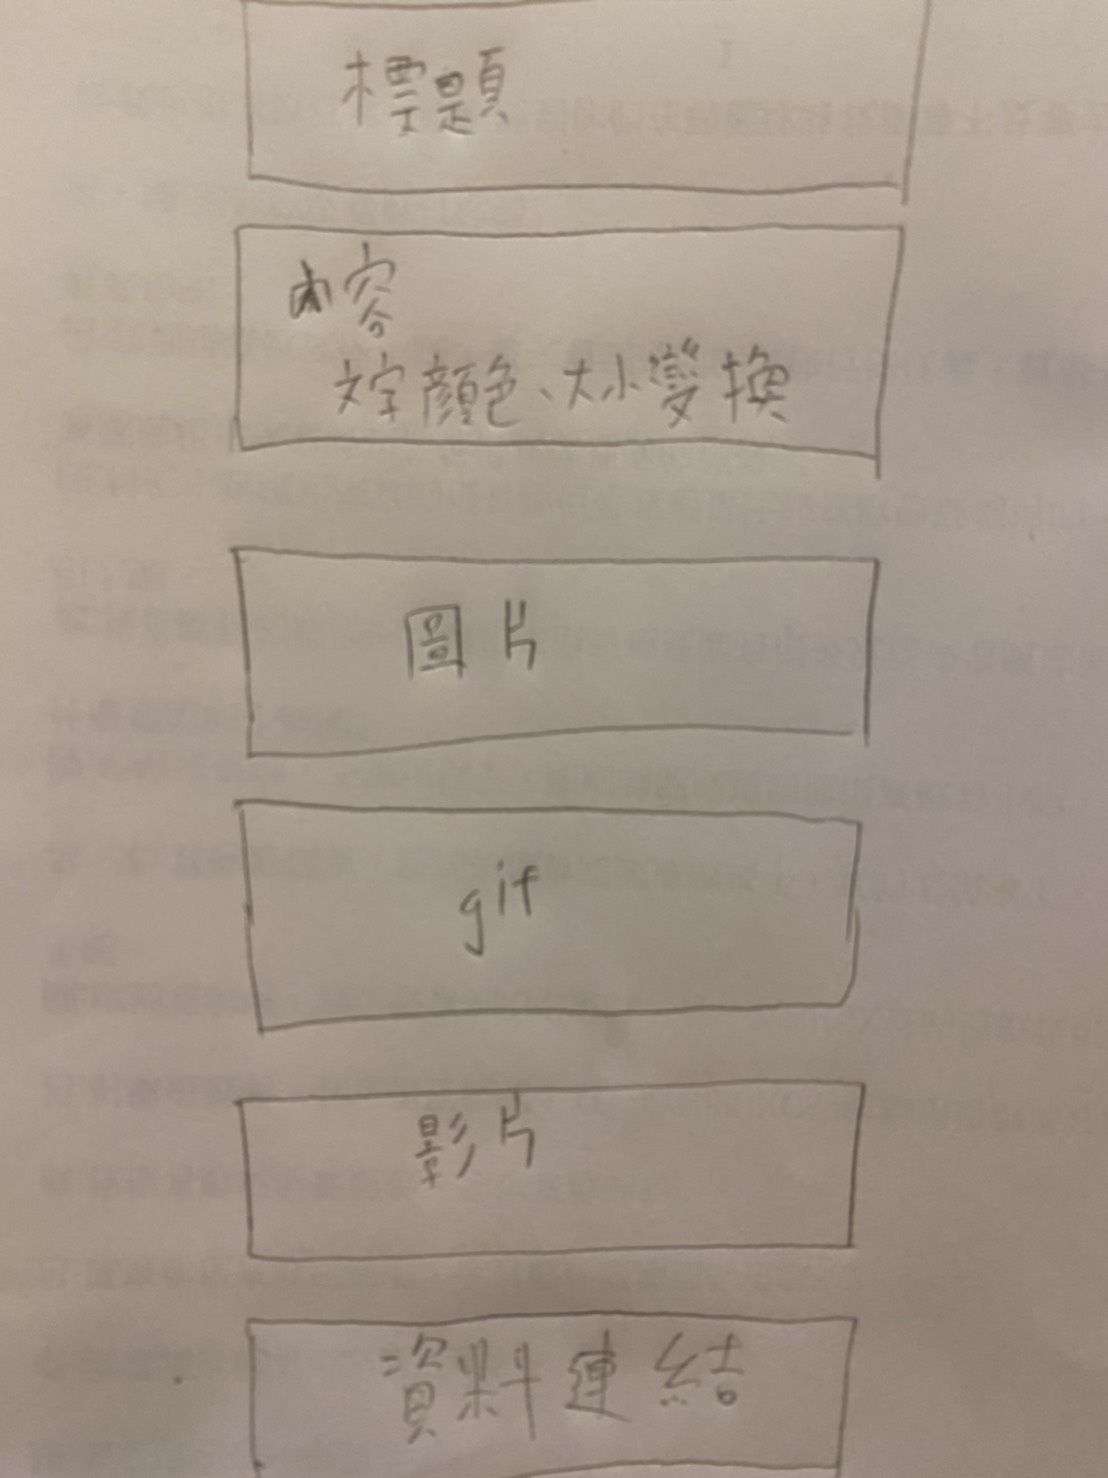 標題
內容
文字顏色、大小變換
圖片
gif
影片
資料連結